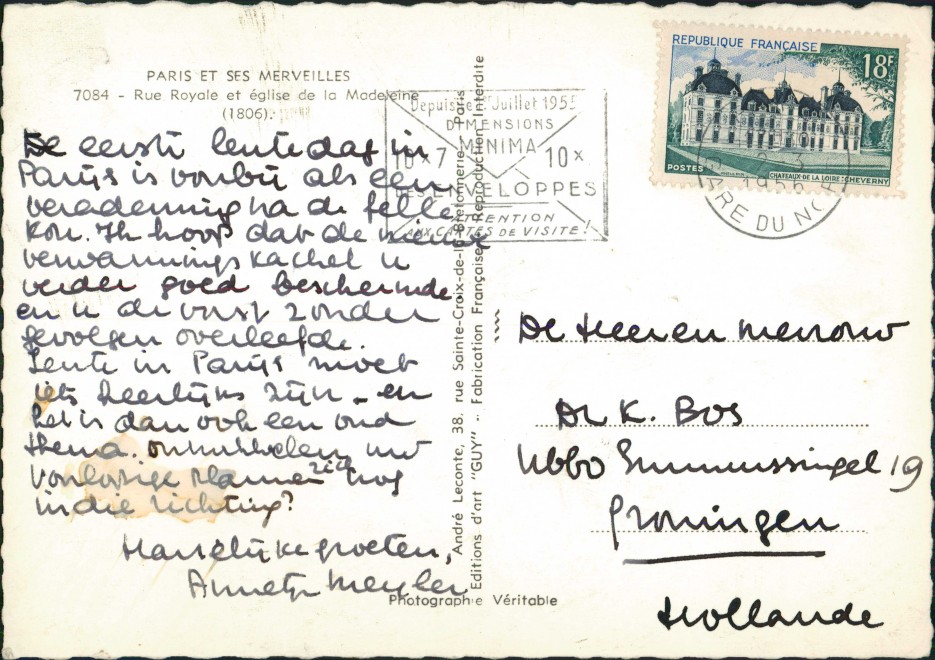 PARIS ET SES MERVEILLES
7084 - Rue Royale et église de la Madeleine
(1806).
De eerste lentedag in
Parijs is voorbij als een
verademing na de felle
kou. Ik hoop dat de nieuwe
verwarmingskachel u
verder goed beschermde
en u de vorst zonder
gevolgen overleefde.
Lente in Parijs moet
iets heerlijks zijn - en
het is dan ook een oud
thema. Ontwikkelen uw
voorlopige plannen zich nog
in die richting?
Hartelijke groeten,
Annetje
Photographie Véritable
André Leconte, 38, rue Sainte-Croix-de-la-Bretonnerie - Paris
Editions d'art "GUY" - Fabrication Française - Reproduction Interdite
Depuis le 1er Juillet 1955
DIMENSIONS
MINIMA
10 x 7 10 x
DES ENVELOPPES
ATTENTION
AUX CARTES DE VISITE !
REPUBLIQUE FRANÇAISE
18F
POSTES
CHATEAUX DE LA LOIRE: CHEVERNY
2 - 3
1956
GARE DU NORD
De Heer en Mevrouw
Dr K. Bos
Ubbo Emmiussingel 19
Groningen
Hollande